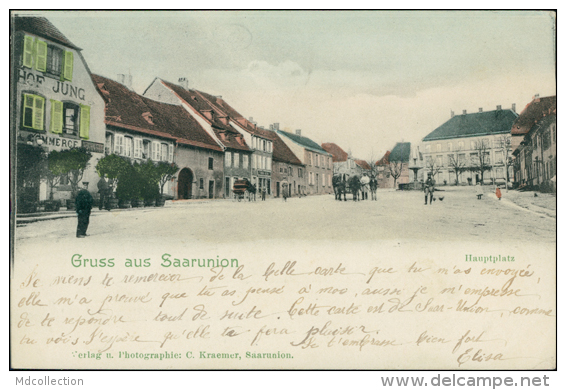 HOF JUNG
COMMERCE
Gruss aus Saarunion
Hauptplatz
Je viens te remercier de la belle carte que tu m'as envoyée,
elle m'a prouvé que tu as pensé à moi, aussi je m'empresse
de te répondre tout de suite. Cette carte est de Saar-Union, comme
tu vois J'espère qu'elle te fera plaisir.
Je t'embrasse bien fort
Elisa
Verlag u. Photographie: C. Kraemer, Saarunion.
Mdcollection
http://www.delcampe.net